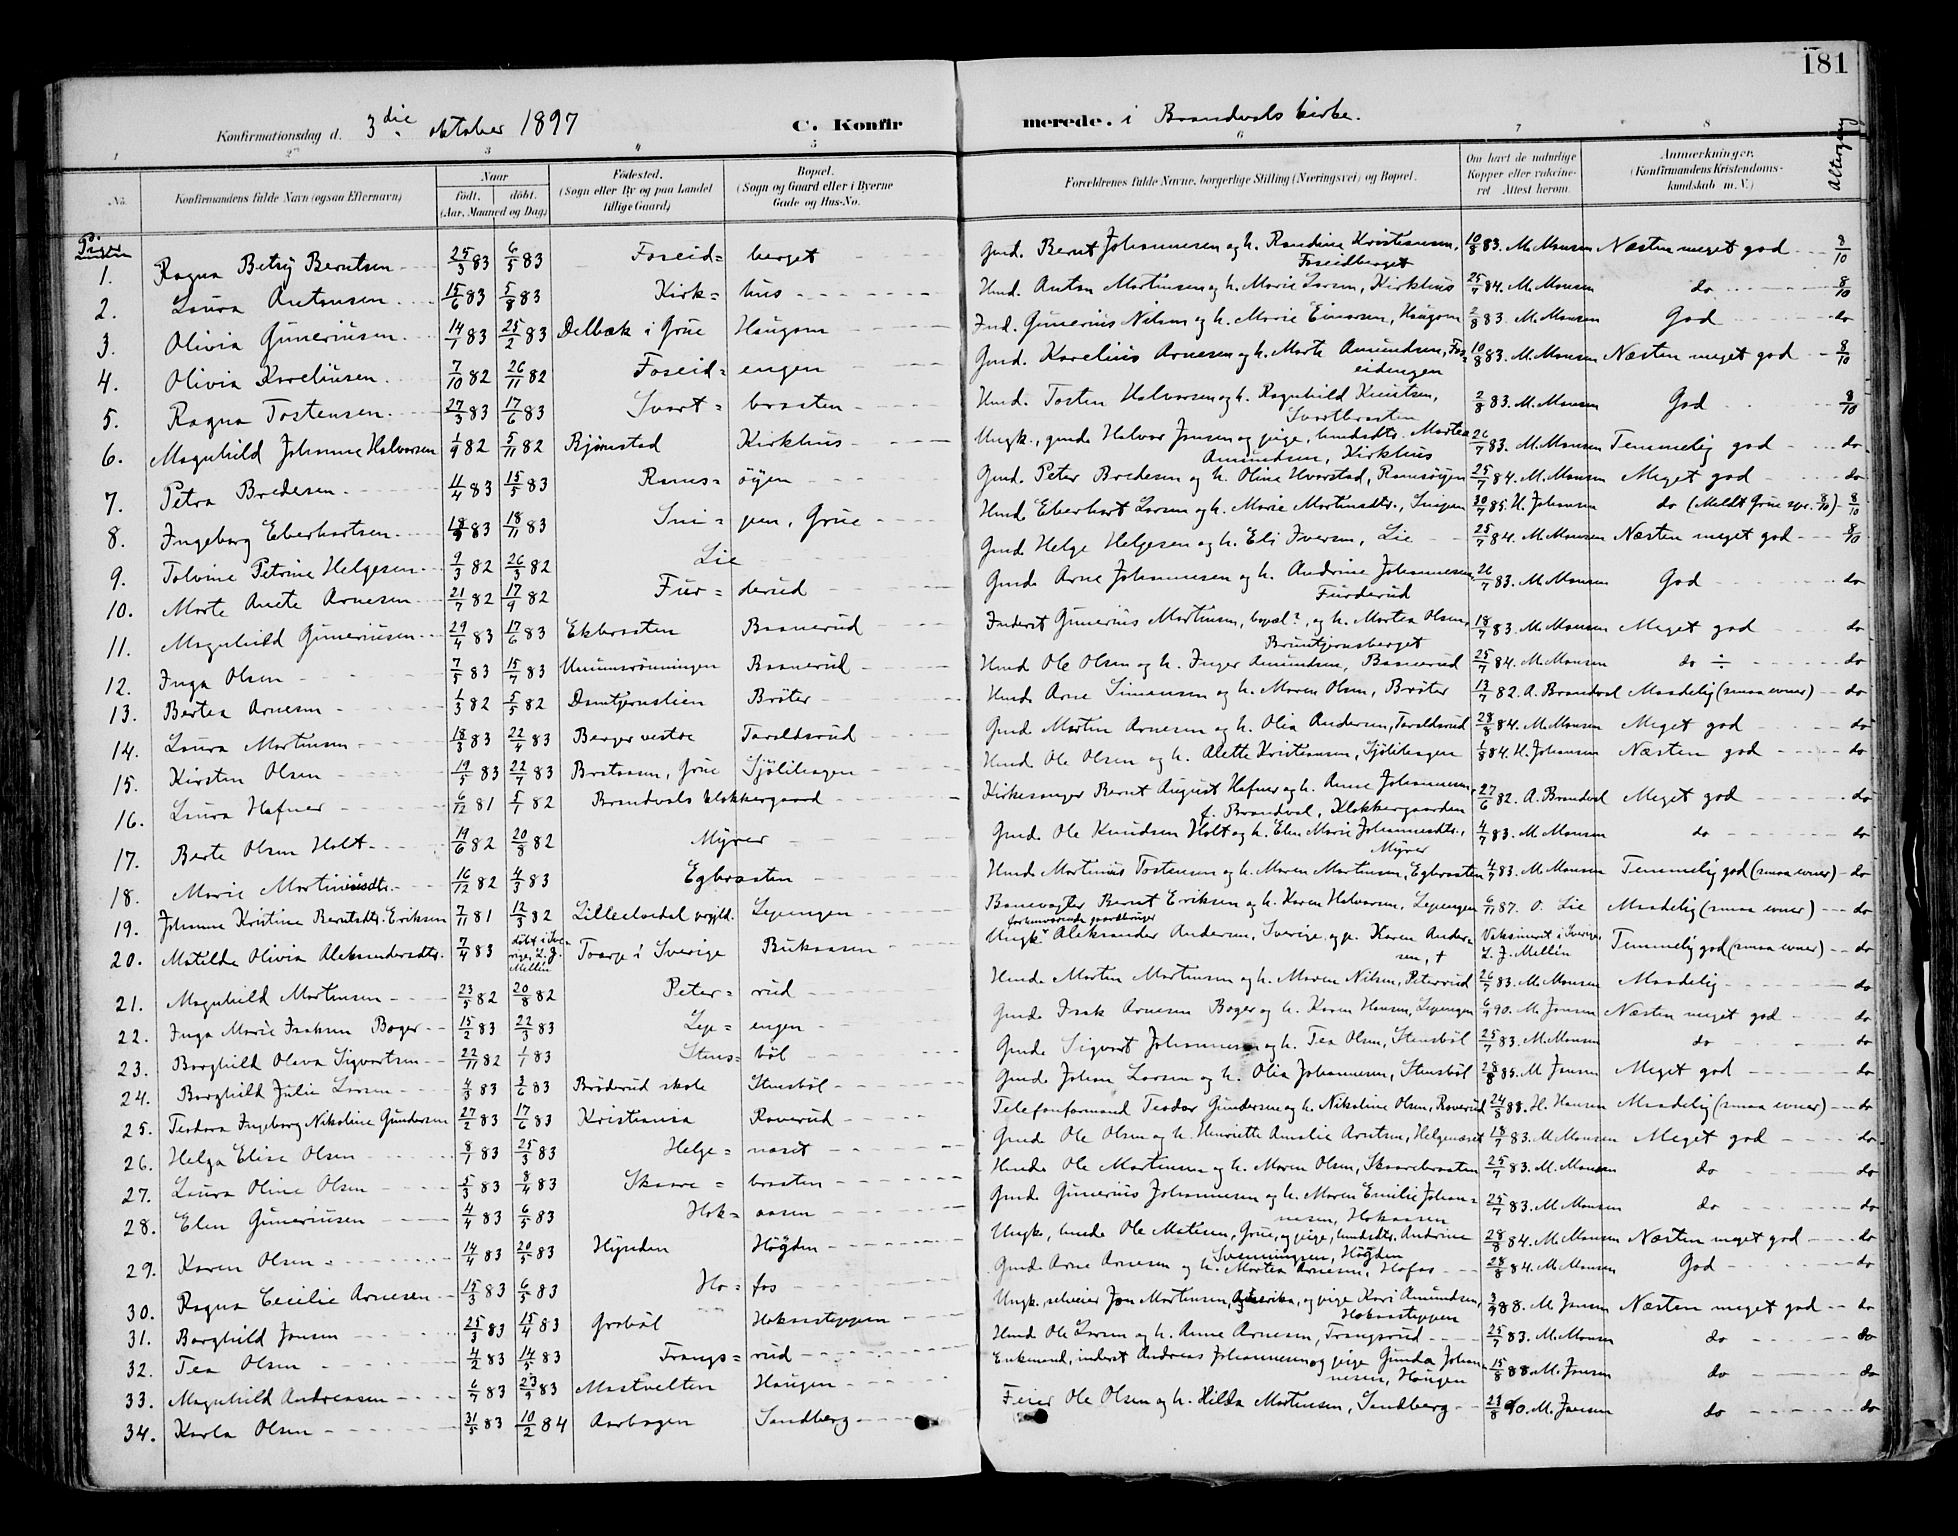 181
Konfirmationsdag d. 3die oktober 1897 C. Konfirmerede. i Brandvals kirke.
1 2 3 4 5 6 7 8
No. Konfirmandens fulde Navn (ogsaa Efternavn) Naar født. døbt. (Aar, Maaned og Dag) Fødested. (Sogn eller By og paa Landet tillige Gaard) Bopæl. (Sogn og Gaard eller i Byerne Gade og Hus-No. Forældrenes fulde Navne, borgerlige Stilling (Næringsvei) og Bopæl. Om havt de naturlige Kopper eller vaccineret Attest herom. Anmærkninger. (Konfirmandens Kristendomskundskab m. V.) Altergang
Piger
1. Ragna Betsy Berntsen 25/3 83 6/5 83 Foseid= berget Gmd. Bernt Johannesen og h. Randine Kristiansen, Foseidberget 10/8 83. M. Monsen Næsten meget god 8/10
2. Laura Antonsen 15/6 83 5/8 83 Kirk= hus Hmd. Anton Martinsen og h. Marie Larsen, Kirkhus 25/7 84. M. Monsen do 8/10
3. Olivia Guneriusen 14/1 83 25/2 83 Delbæk i Grue Haugom Ind. Gunerius Nilsen og h. Marie Einarsen, Haugom 2/8 83. M. Monsen God do
4. Olivia Koreliusen 7/10 82 26/11 82 Foseid= engen Gmd. Korelius Arnesen og h. Marte Amundsen, Foseidengen 10/8 83. M. Monsen Næsten meget god 8/10
5. Ragna Tostensen 27/3 83 17/6 83 Svart= braaten Hmd. Tosten Halvorsen og h. Ragnhild Knutsen, Svartbraaten 2/8 83. M. Monsen God 8/10
6. Magnhild Johanne Halvorsen 1/9 82 5/11 82 Bjørnstad Kirkhus Ungk., gmds Halvor Jonsen og pige, hmdsdtr. Martea Amundsen, Kirkhus 26/7 83. M. Monsen Temmelig god do
7. Petra Bredesen 11/4 83 15/5 83 Rams= øyen Gmd. Peter Bredesen og h. Oline Hvorstad, Ramsøyen 25/7 84. M. Monsen Meget god do
8. Ingeborg Eberhartsen 18/9 83 18/11 83 Sni= pen, Grue Hmd. Eberhart Larsen og h. Marie Martinsdtr., Snipen 30/7 85. H. Johansen do (Meldt Grue spr. 8/10) 8/10
9. Tolvine Petrine Helgesen 9/3 82 26/3 82 Lie Gmd Helge Helgesen og h. Eli Iversen, Lie 25/7 84. M. Monsen Næsten meget god 8/10
10. Marte Anete Arnesen 21/7 82 17/9 82 Fur= derud Gmd. Arne Johannesen og h. Andrine Johannesen, Furderud 26/7 83. M. Monsen God do
11. Magnhild Gunneriusen 29/4 83 17/6 83 Ekbraaten Baanerud Inderst Gunerius Martinsen, bopæl?, og h. Martea Olsen, Bruntjernsberget 18/7 83. M. Monsen Meget god do
12. Inga Olsen 7/5 83 15/7 83 Unumsrønningen Baanerud Hmd Ole Olsen og h. Inger Amundsen, Baanerud 25/7 84. M. Monsen do ÷ do
13. Bertea Arnesen 1/3 82 5/5 82 Damtjernslien Brøter Hmd. Arne Simensen og h. Maren Olsen, Brøter 13/7 82. A. Brandval Maadelig (smaa evner) do
14. Laura Martinsen 18/3 83 22/4 83 Berger vestre Taraldsrud Gmd Martin Arnesen og h. Olia Andersen, Taraldsrud 28/8 84. M. Monsen Meget god do
15. Kirsten Olsen 19/5 83 22/7 83 Brataasen, Grue Sjølihagen Hmd. Ole Olsen og h. Alette Kristiansen, Sjølihagen 1/8 84. H. Johansen Næsten god do
16. Laura Hafner 6/12 81 5/1 82 Brandvals klokkergaard Kirkesanger Bernt August Hafner og h. Anne Johannesen, f. Brandval, Klokkergaarden 27/6 82. A. Brandval Meget god do
17. Berte Olsen Holt 19/6 82 20/8 82 Myrer Gmd. Ole Knudsen Holt og h. Elen Marie Johannesdtr., Myrer 4/7 83. M. Monsen do do
18. Marie Martiniusdtr. 16/12 82 4/3 83 Egbraaten Hmd. Martinius Tostensen og h. Maren Martinsen, Egbraaten 4/7 83. M. Monsen Temmelig god (smaa evner) do
19. Johanne Kristine Berntsdtr. Eriksen 7/11 81 12/3 82 Lilleelvedal prgjld. Lepengen Banevogter Bernt Eriksen og h. Karen Halvorsen, Lepengen 6/11 87. O. Lie Maadelig (smaa evner) do
20. Matilde Olivia Aleksandersdtr. 7/4 83 døbt i Sverige, L. J. Mellin Toarp i Sverige Bukaasen Ungk. forhenværende gaardbruger Aleksander Andersen, Sverige, og p. Karen Andersen, † Vaksineret i Sverige, L. J. Mellin Temmelig god (smaa evner) do
21. Magnhild Martinsen 23/5 82 20/8 82 Peter= rud Hmd. Martin Martinsen og h. Maren Nilsen, Peterrud 26/7 83. M. Monsen Maadelig do
22. Inga Marie Isaksen Boger 15/2 83 22/3 83 Lep= engen Gmd. Isak Arnesen Boger og h. Karen Hansen, Lepengen 6/9 90. M. Jonsen Næsten meget god do
23. Borghild Olava Sigvartsen 22/11 82 1/1 83 Stens= bøl Gmd. Sigvart Johannesen og h. Tea Olsen, Stensbøl 25/7 83. M. Monsen do do
24. Borghild Julie Larsen 4/3 83 3/6 83 Brøderud skole Stensbøl Gmd. Johan Larsen og h. Olia Johannesen, Stensbøl 28/8 85. M. Jonsen Meget god do
25. Teodora Ingeborg Nikoline Gundersen 27/2 83 17/6 83 Kristiania Roverud Telefonformand Teodor Gundersen og h. Nikoline Olsen, Roverud 24/8 88. H. Hansen Maadelig (smaa evner) do
26. Helga Elise Olsen 8/1 83 25/3 83 Helge= næset Gmd. Ole Olsen og h. Henriette Amalie Arntsen, Helgenæset 18/7 83. M. Monsen Meget god do
27. Laura Oline Olsen 5/3 83 8/4 83 Skaare= braaten Hmd. Ole Martinsen og h. Maren Olsen, Skaarebraaten 25/7 83. M. Monsen do do
28. Elen Gunneriusen 4/4 83 6/5 83 Hok= aasen Gmd. Gunerius Johannesen og h. Maren Emilie Johannesen, Hokaasen 25/7 83. M. Monsen do do
29. Karen Olsen 14/4 83 20/5 83 Hynden Høgden Ungk., hmds. Ole Matisen, Grue, og pige, hmdsdtr. Andrine Svenningsen, Høgden 28/8 84. M. Monsen Næsten meget god do
30. Ragna Cecilie Arnesen 15/3 83 6/5 83 Ho= fos Gmd. Arne Arnesen og h. Martea Arnesen, Hofos 28/8 84. M. Monsen God do
31. Borghild Jonsen 25/3 83 15/4 83 Grobøl Hokaasteppen Ungk., selveier Jon Mortensen, Amerika, og pige Kari Amundsen, Hokaasteppen 3/9 88. M. Jonsen Næsten meget god do
32. Tea Olsen 4/2 83 14/5 83 Trangs= rud Hmd. Ole Larsen og h. Anne Arnesen, Trangsrud 25/7 83. M. Monsen do do
33. Magnhild Andreassen 6/7 83 23/9 83 Mastvelten Haugen Enkemand, inderst Andreas Johannesen og pige Gunda Johannesen, Haugen 15/8 88. M. Jonsen do do
34. Karla Olsen 31/5 83 10/2 84 Aarbogen Sandberg Feier Ole Olsen og h. Hilda Mortensen, Sandberg 23/8 90. M. Jonsen do do